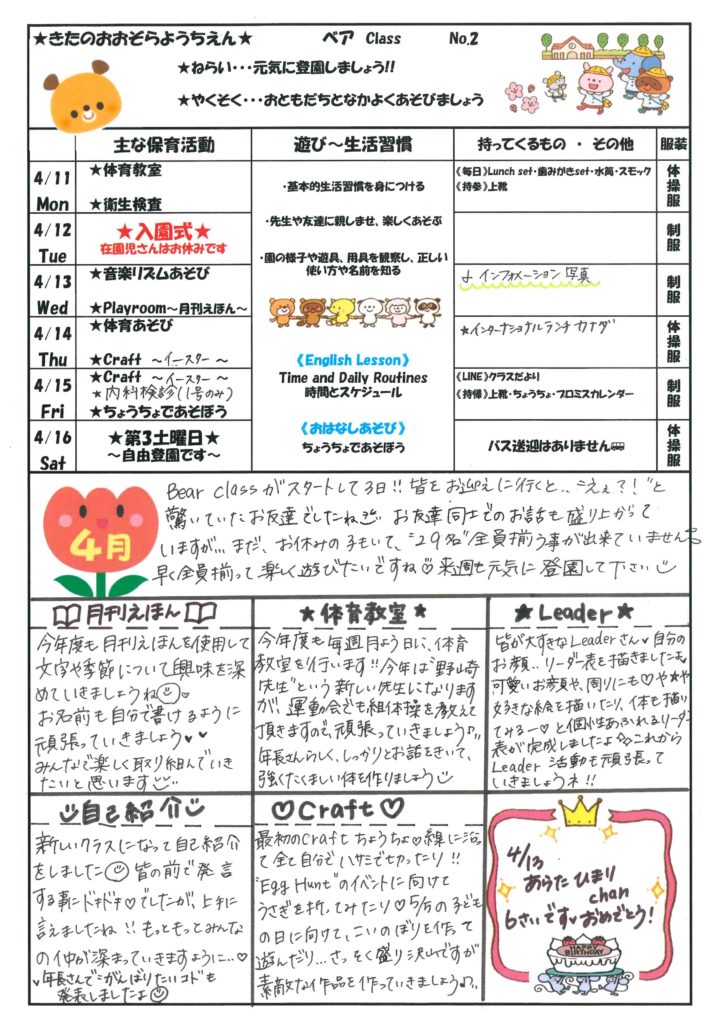 ★きたのおおぞらようちえん★　ベア　Class　No.2
★ねらい・・・元気に登園しましょう!!
★やくそく・・・おともだちとなかよくあそびましょう
主な保育活動　遊び～生活習慣　持ってくるもの ・ その他　服装
4/11 Mon
★体育教室
★衛生検査
《毎日》Lunch set・歯みがきset・水筒・スモック
《持参》上靴
体操服
4/12 Tue
★入園式★
在園児さんはお休みです
制服
4/13 Wed
★音楽リズムあそび
★Playroom～月刊えほん～
インフォメーション写真
制服
4/14 Thu
★体育あそび
★Craft ～イースター～
★インターナショナルランチ カナダ
体操服
4/15 Fri
★Craft ～イースター～
★内科検診(1号のみ)
★ちょうちょであそぼう
《LINE》クラスだより
《持帰》上靴・ちょうちょ・プロミスカレンダー
制服
4/16 Sat
★第3土曜日★
～自由登園です～
バス送迎はありません
体操服
・基本的生活習慣を身につける
・先生や友達に親しませ、楽しくあそぶ
・園の様子や遊具、用具を観察し、正しい
使い方や名前を知る
《English Lesson》
Time and Daily Routines
時間とスケジュール
《おはなしあそび》
ちょうちょであそぼう
4月
Bear classがスタートして3日!! 皆をお迎えに行くと..“えぇ？！”と
驚いていたお友達でしたね お友達同士でのお話も盛り上がって
いますが... まだ、お休みの子もいて、“29名”全員揃う事が出来ていません
早く全員揃って楽しく遊びたいですね♡来週も元気に登園して下さい
月刊えほん
今年度も月刊えほんを使用して
文字や季節について興味を深
めていきましょうね
お名前も自分で書けるように
頑張っていきましょう♥♥
みんなで楽しく取り組んでいき
たいと思います
★体育教室★
今年度も毎週月よう日に、体育
教室を行います!! 今年は“野崎
先生”という新しい先生になります
が、運動会でも組体操を教えて
頂きますので、頑張っていきましょう♪
年長さんらしく、しっかりとお話をきいて、
強くたくましい体を作りましょう
★Leader★
皆が大すきなLeaderさん♥自分の
お顔..リーダー表を描きました
可愛いお顔や、周りにも♡や★や
好きな絵を描いたり、体も描い
てみるー♡ と個性あふれるリーダー
表が完成しましたよ これから
Leader 活動も頑張って
いきましょうネ!!
自己紹介
新しいクラスになって自己紹介
をしました 皆の前で発言
する事にドキドキ♡でしたが、上手に
言えましたね!! もっともっとみんな
の仲が深まっていきますように...♡
♥年長さんでがんばりたいコトも
発表しましたよ
♡Craft♡
最初のCraft ちょうちょ♡線に沿
って全て自分でハサミで切ったり!!
“Egg Hunt”のイベントに向けて
うさぎを折ってみたり♡5月の子ども
の日に向けて、こいのぼりを作って
遊んだり... さっそく盛り沢山ですが
素敵な作品を作っていきましょう♪
4/13
あらた ひまり
chan
6さいです♥おめでとう!
HAPPY BIRTHDAY